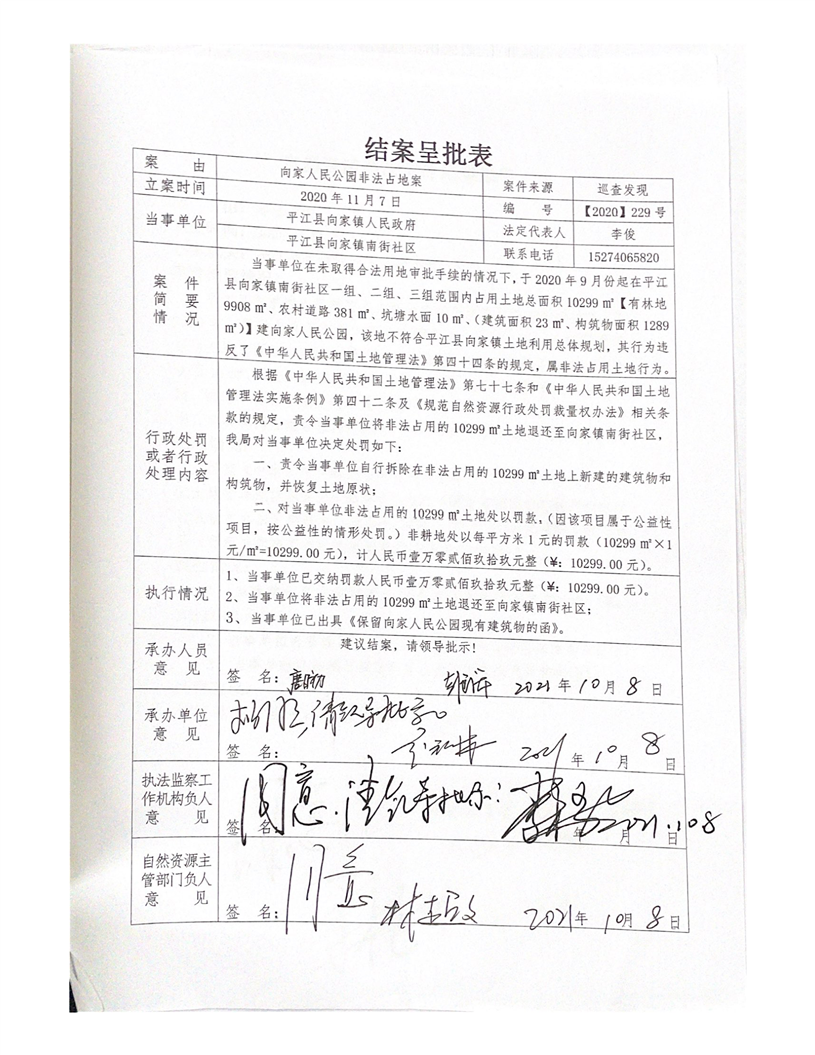 结案呈批表
案 由 向家人民公园非法占地案 案件来源 巡查发现
立案时间 2020 年 11 月 7 日 编 号 【2020】229 号
当事单位 平江县向家镇人民政府 法定代表人 李俊
平江县向家镇南街社区 联系电话 15274065820
案 件
简 要
情 况
当事单位在未取得合法用地审批手续的情况下，于 2020 年 9 月份起在平江
县向家镇南街社区一组、二组、三组范围内占用土地总面积 10299 ㎡【有林地
9908 ㎡、农村道路 381 ㎡、坑塘水面 10 ㎡、（建筑面积 23 ㎡、构筑物面积 1289
㎡）】建向家人民公园，该地不符合平江县向家镇土地利用总体规划，其行为违
反了《中华人民共和国土地管理法》第四十四条的规定，属非法占用土地行为。
行政处罚
或者行政
处理内容
根据《中华人民共和国土地管理法》第七十七条和《中华人民共和国土地
管理法实施条例》第四十二条及《规范自然资源行政处罚裁量权办法》相关条
款的规定，责令当事单位将非法占用的 10299 ㎡土地退还至向家镇南街社区，
我局对当事单位决定处罚如下：
一、责令当事单位自行拆除在非法占用的 10299 ㎡土地上新建的建筑物和
构筑物，并恢复土地原状；
二、对当事单位非法占用的 10299 ㎡土地处以罚款，（因该项目属于公益性
项目，按公益性的情形处罚。）非耕地处以每平方米 1 元的罚款（10299 ㎡×1
元/㎡=10299.00 元），计人民币壹万零贰佰玖拾玖元整（¥：10299.00 元）。
执行情况
1、当事单位已交纳罚款人民币壹万零贰佰玖拾玖元整（¥：10299.00 元）。
2、当事单位将非法占用的 10299 ㎡土地退还至向家镇南街社区；
3、当事单位已出具《保留向家人民公园现有建筑物的函》。
承办人员
意 见
建议结案，请领导批示！
签 名： 2021 年 10 月 8 日
承办单位
意 见
请领导批示。
签 名： 2021 年 10 月 8 日
执法监察工
作机构负人
意 见
同意，请领导批示！
签 名： 年 月 日 2021.10 8
自然资源主
管部门负人
意 见
同意
签 名： 2021 年 10 月 8 日